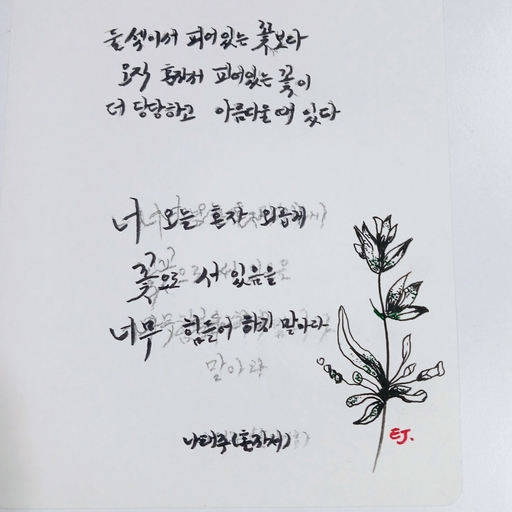 둘 셋이서 피어 있는 꽃보다
오직 혼자서 피어있는 꽃이
더 당당하고 아름다울 때 있다
너 오늘 혼자 외롭게
꽃으로 서 있음을
너무 힘들어 하지 말아라
말아라
나태주(혼자서)
EJ.